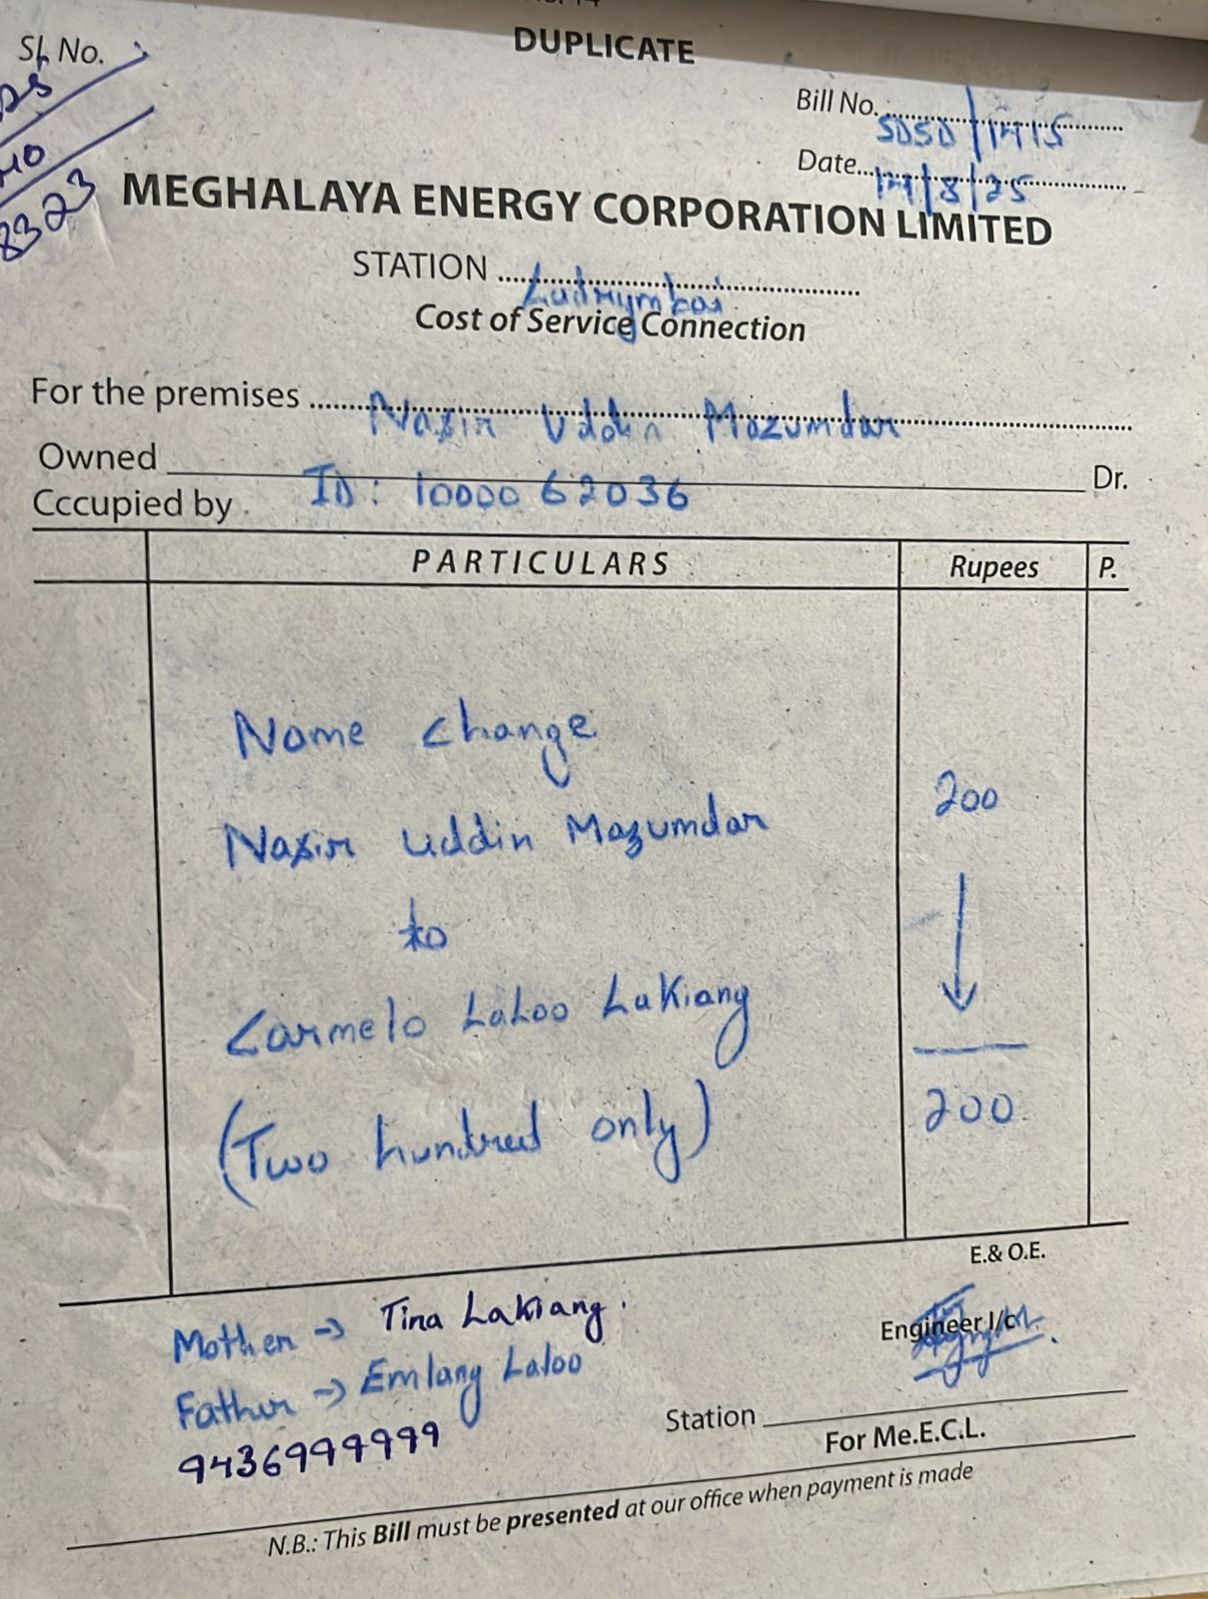 DUPLICATE
Sl. No.
Bill No. SDSD/1415
Date 14/8/25
8323
MEGHALAYA ENERGY CORPORATION LIMITED
STATION Ladrymbai
Cost of Service Connection
For the premises Nasir Uddin Mazumdar
Owned Dr.
Cccupied by ID: 1000062036
PARTICULARS Rupees P.
Name change
200
Nasir Uddin Mazumdar
to
Carmelo Laloo Lakiang
(Two hundred only) 200
E.& O.E.
Mother → Tina Lakiang.
Engineer I/c
Father → Emlang Laloo
Station
9436999999
For Me.E.C.L.
N.B.: This Bill must be presented at our office when payment is made